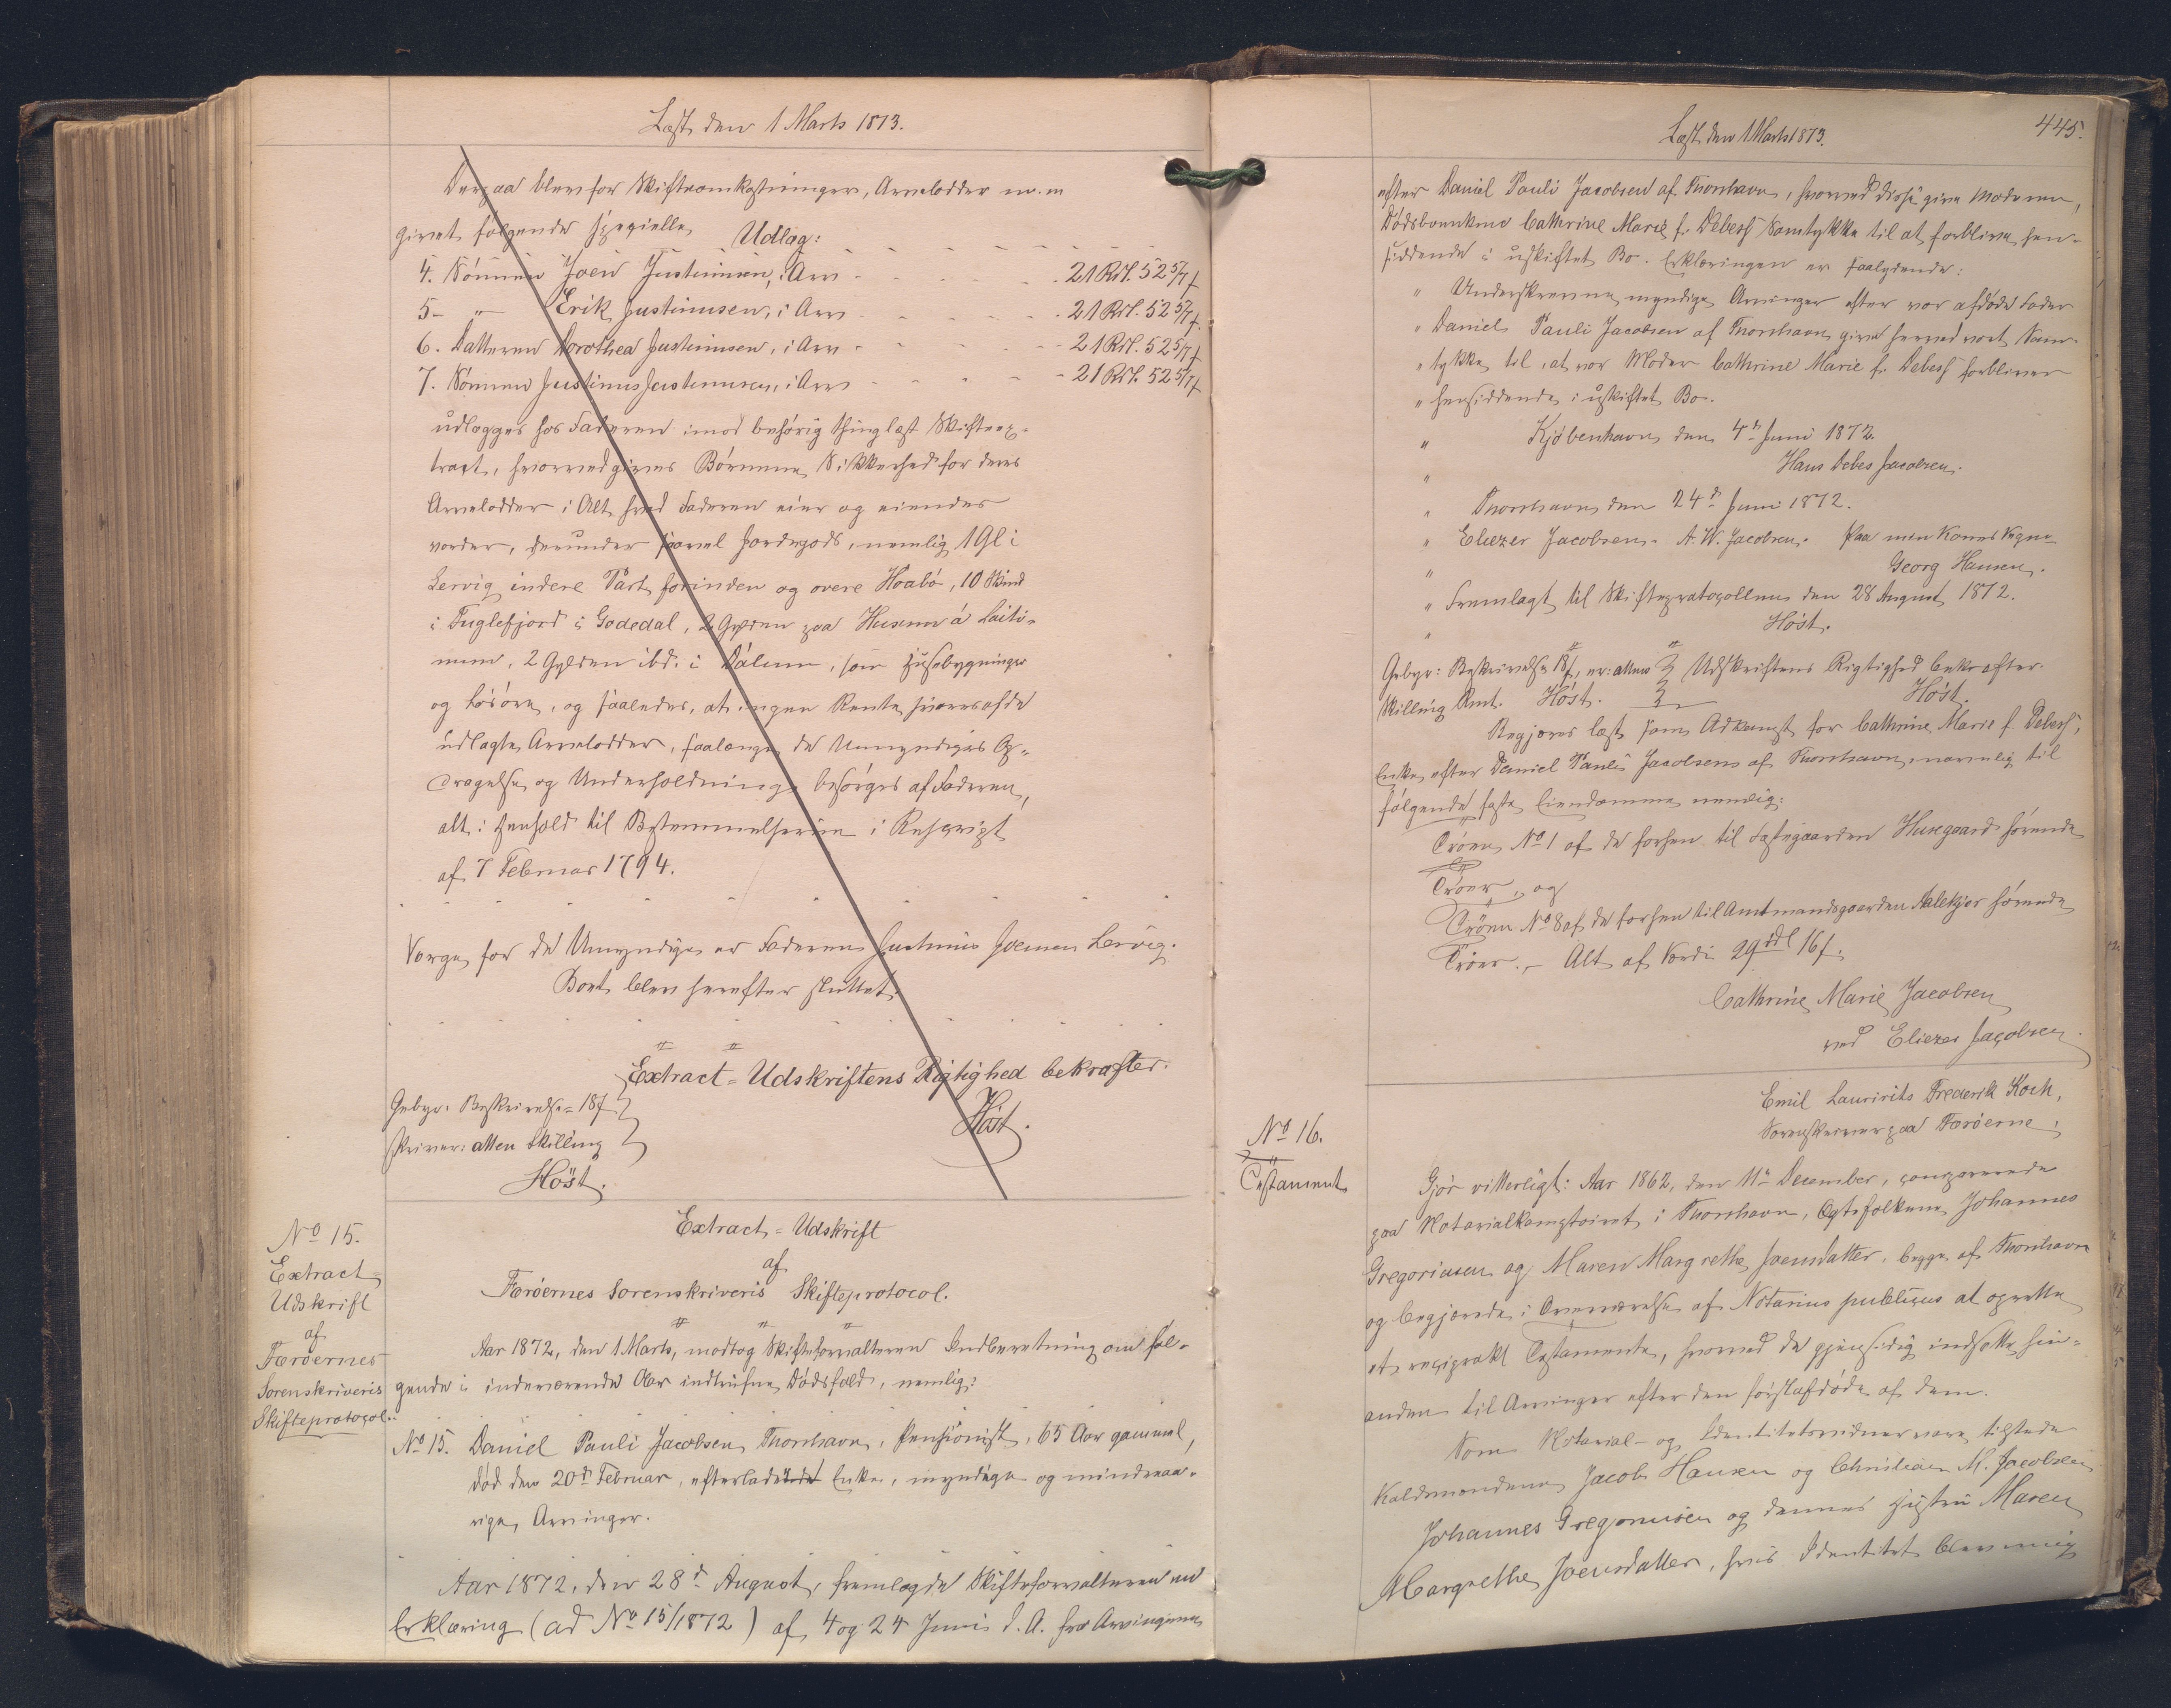 Læst den 1 Marts 1873.
Derpaa blev for Skifteomkostninger, Arvelodder m.m
givet følgende specielle Udlæg:
4. Sønnen Joen Justinusen, i Arv - - - 21 Rdl. 52 5/7 f
5- " Erik Justinusen, i Arv - - - 21 Rdl. 52 5/7 f
6. Datteren Dorothea Justinusen, i Arv - - - 21 Rdl. 52 5/7 f
7. Sønnen Justinus Justinusen, i Arv - - - 21 Rdl. 52 5/7 f
udlægges hos Faderen imod behørig thinglæst Skifteex-
tract, hvorved gives Børnene Sikkerhed for deres
Arvelodder i Alt hvad Faderen eier og eiendes
vorder, derunder saavel Jordegods, nemlig 1 Gl i
Lervig indere Part forinden og overe Høabö, 10 Skind
i Fuglefjord i Godedal, 2 Gylden paa Husene á Laiti-
num, 2 Gylden ibd. i Dalum, som Huusbygninger
og Løsøre, og saaledes, at ingen Rente svares af de
udlagte Arvelodder, saalænge de Umyndiges Op-
dragelse og Underholdning besørges af Faderen,
alt i Henhold til Bestemmelserne i Rescript
af 7 Februar 1794.
Værge for de Umyndige er Faderen Justinus Joensen Lervig.
Boet blev herefter sluttet.
Extract-Udskriftens Rigtighed bekræfter.
Gebyr: Beskrivelse 18 f
skriver: atten Skilling
Høst.
Høst.
No 15.
Extract
Udskrift
af
Færøernes
Sorenskriveris
Skifteprotocol.
Extract-Udskrift
af
Færøernes Sorenskriveris Skifteprotocol.
Aar 1872, den 1 Marts, modtog Skifteforvalteren Indberetning om føl-
gende i indeværende Aar indtrufne Dødsfald, nemlig:
No 15. Daniel Pauli Jacobsen, Thorshavn, Pensionist, 65 Aar gammel,
død den 20de Februar, efterlader Enke, myndige og mindreaa-
rige Arvinger.
Aar 1872, den 28de August, fremlagde Skifteforvalteren en
Erklæring (ad No 15/1872) af 4 og 24 Juni d. A. fra Arvingerne
445.
Læst den 1 Marts 1873.
efter Daniel Pauli Jacobsen af Thorshavn, hvorved disse give Moderen,
Dødsboenken Cathrine Marie f. Debess Samtykke til at forblive hen-
siddende i uskiftet Bo. Erklæringen er saalydende:
" Underskrevne myndige Arvinger efter vor afdøde Fader
" Daniel Pauli Jacobsen af Thorshavn give herved vort Sam-
" tykke til, at vor Moder Cathrine Marie f. Debess forbliver
" hensiddende i uskiftet Bo.
" Kjøbenhavn den 4de Juni 1872.
" Hans Debes Jacobsen.
" Thorshavn den 24de Juni 1872.
" Eliezer Jacobsen. A. W. Jacobsen. Paa min Kones Vegne
" Georg Hansen.
" Fremlagt til Skifteprotocollen den 28 August 1872.
" Høst.
Gebyr: Beskrivelse 18 f, er: atten Udskriftens Rigtighed bekræfter.
Skilling Høst. Høst.
Begjæres læst som Adkomst for Cathrine Marie f Debess,
Enke efter Daniel Pauli Jacobsen af Thorshavn, navnlig til
følgende faste Eiendomme nemlig:
Trøen No 1 af de forhen til Fæstegaarden Husegaard hørende
Trøer, og
Trøen No 8 af de forhen til Amtmandsgaarden Aalekjer hørende
Trøer. - Alt af Værdi 29 rdl 16 f.
Cathrine Marie Jacobsen
ved Eliezer Jacobsen
No 16.
Testament
Emil Lauririts Frederik Koch,
Sorenskriver paa Færøerne,
Gjør vitterligt: Aar 1862, den 11te December, comparerede
paa Notarialkomptoiret i Thorshavn, Ægtefolkene Johannes
Gregoriusen og Maren Margrethe Joensdatter, begge af Thorshavn
og begjærede i Overværelse af Notarius publicus at oprette
et reciprokt Testamente, hvorved de gjensidig indsætte hin-
anden til Arvinger efter den førstafdøde af dem.
Som Notarial- og Identitetsvidner vare tilstede
Kaldsmændene Jacob Hansen og Christian M. Jacobsen
Johannes Gregoriusen og dennes Hustru Maren
Margrethe Joensdatter, hvis Identitet blev mig